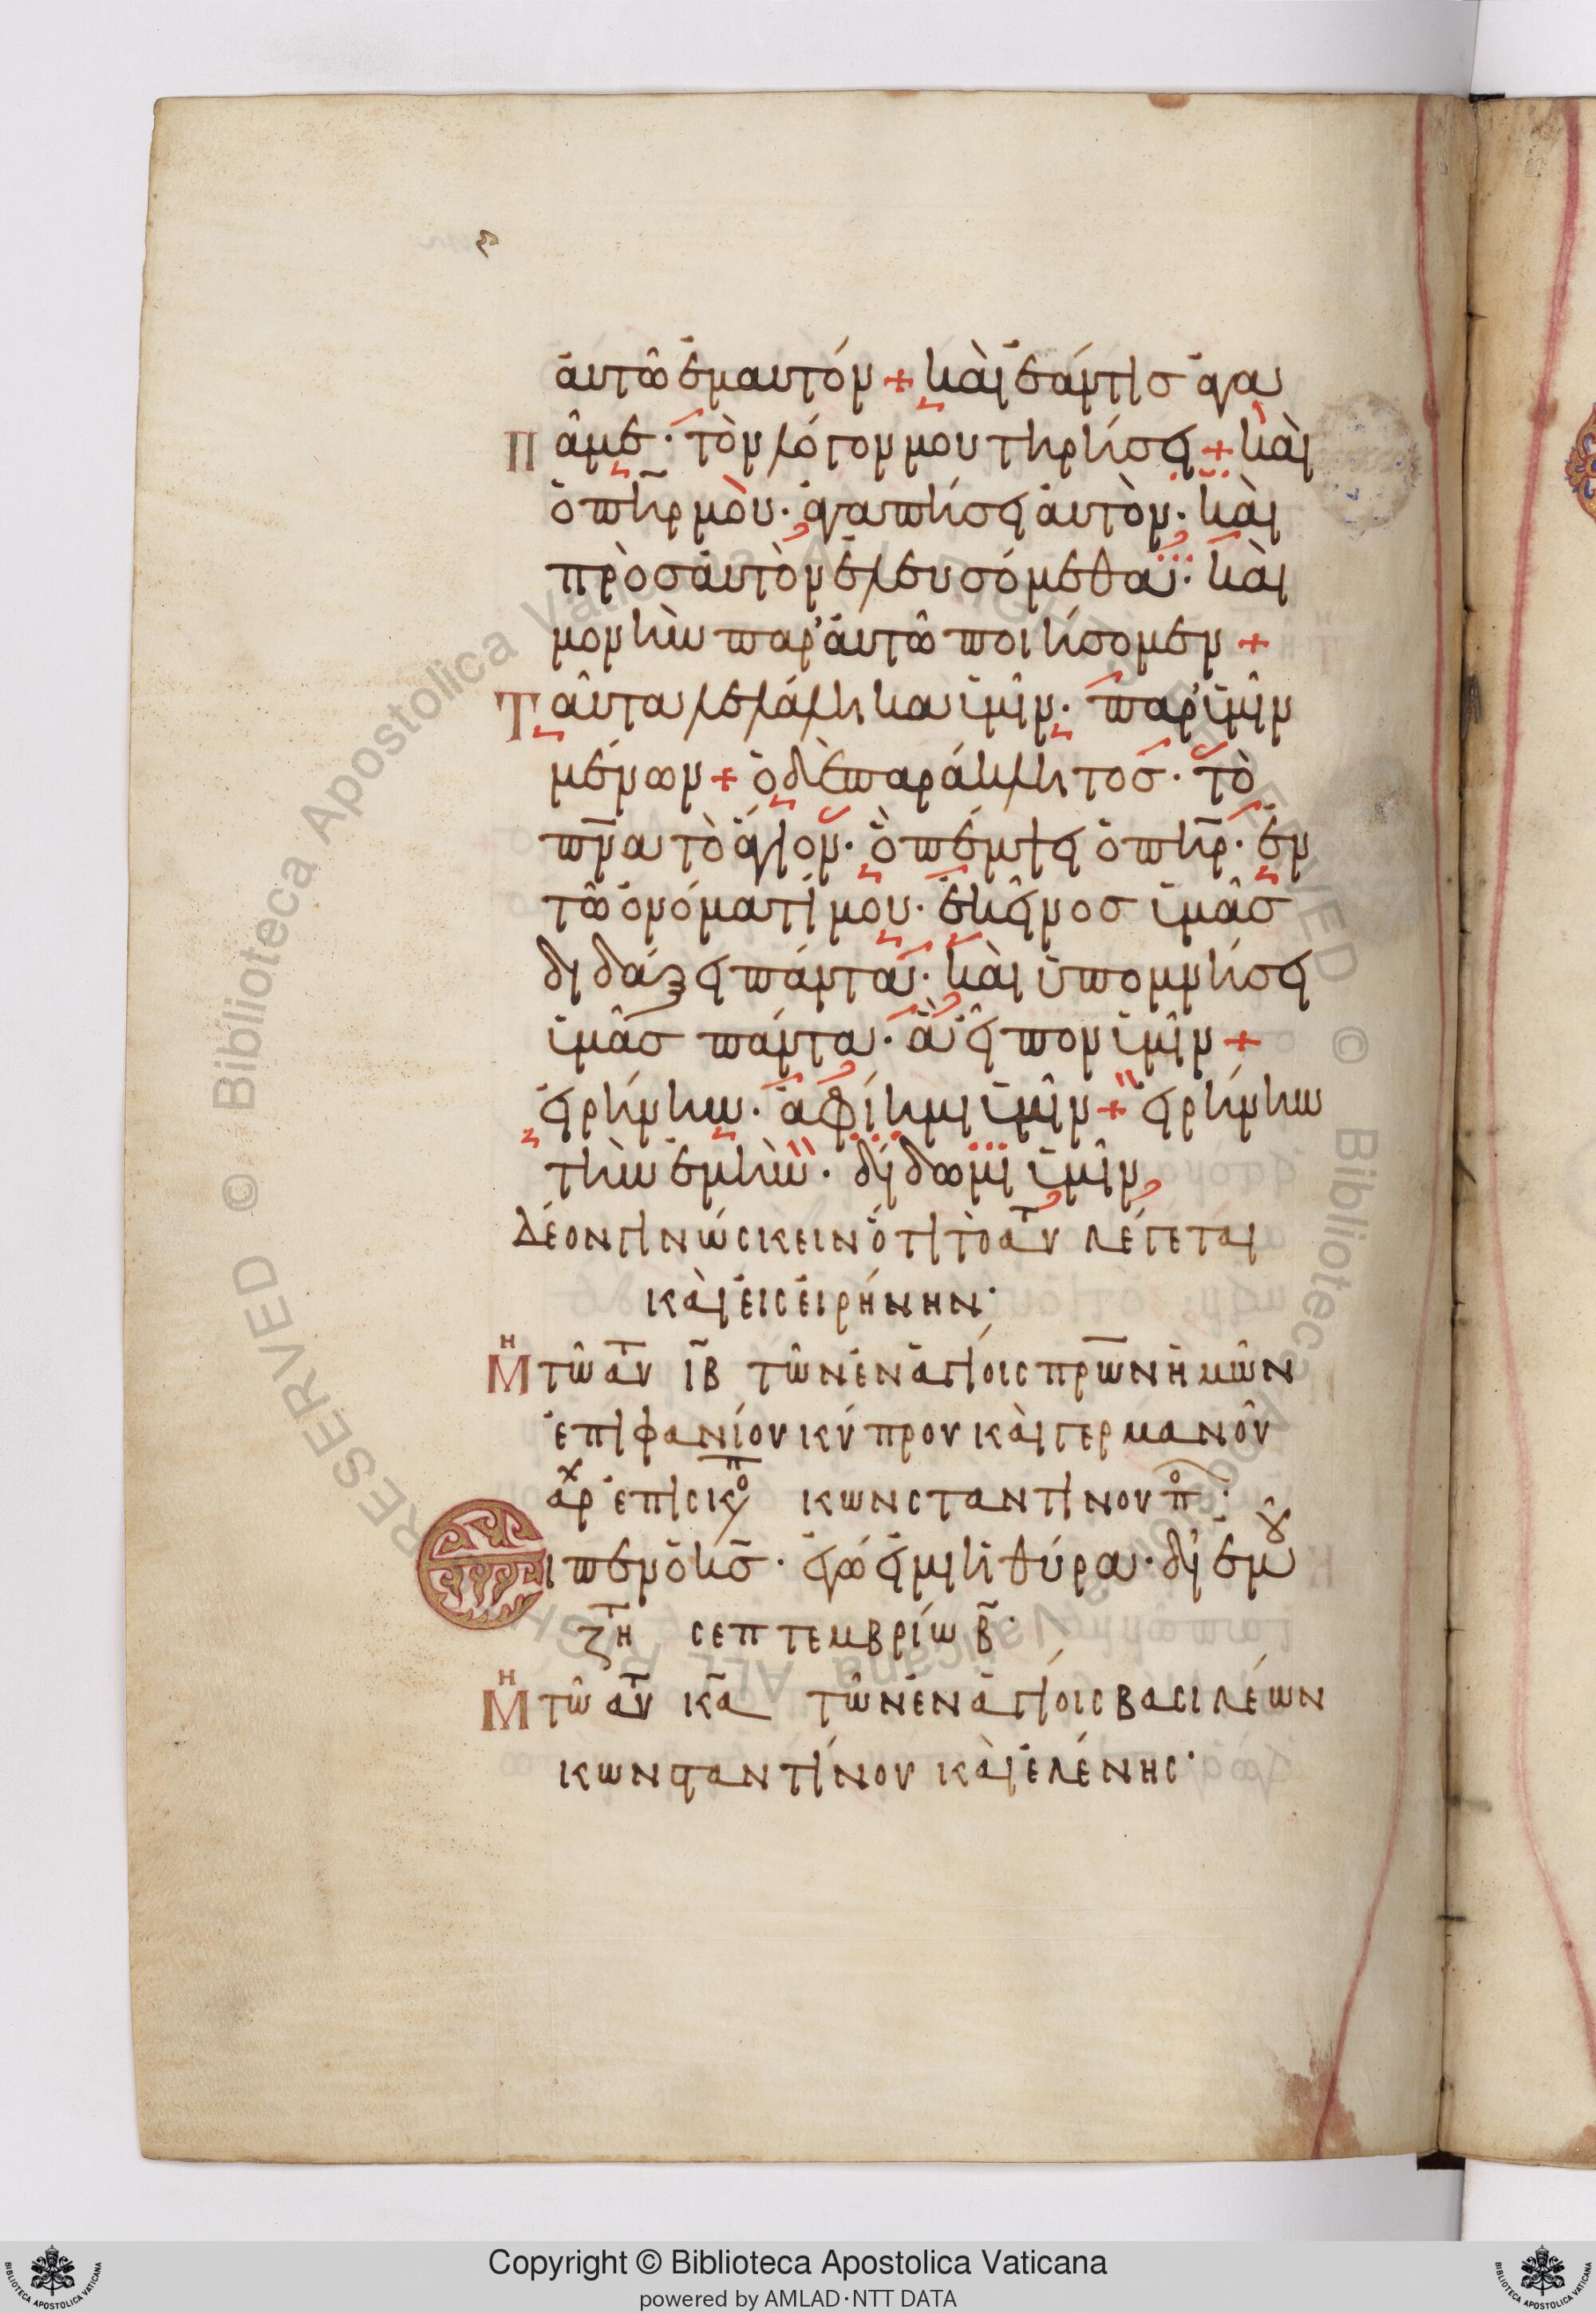 ἀυτῶ ἐμαυτόν + κὰι ἐάντισ ἀγα
Πᾶμε· τὸν λόγον μου τηρήσει + κὰι
ὁ πη̅ρ μὸυ· ἀγαπήσει ἀυτὸν· κὰι
πρὸσ ἀυτὸν ἐλευσόμεθα· κὰι
μονὴν παρ' ἀυτῶ ποιήσομεν +
Ταῦτα λελάληκα ὑμῖν· παρ' ὑμῖν
μένων + ὁ δὲ παράκλητοσ· τὸ
πν̅α τὸ ἅγιον· ὃ πέμψει ὁ πη̅ρ· ἐν
τῶ ὀνόματί μου· ἐκεῖνοσ ὑμᾶσ
διδάξει πάντα· κὰι ὑπομνήσει
ὑμᾶσ πάντα· ἃ εἶπον ὑμῖν +
εἰρήνην· ἀφίημι ὑμῖν + εἰρήνην
τὴν ἐμὴν· δίδωμι ὑμῖν
Δέον γινώσκειν ὅτι τὸ ἀυ̅τ λέγεται
κὰι ἐις ἐιρήνην·
Μη τῶ ἀυ̅τ ι̅β τῶν ἐν ἁγίοις πρω̅ν ἡμῶν
ἐπιφανίου κύπρου κὰι γερμανοῦ
ἀρχ ἐπισκοπ κωνσταντινουπο·
Ειπεν ὁ κ̅σ· ἐγώ εἰμι ἡ θύρα· δι' ἐμοῦ
ζη̅τ σεπτεμβρίω β̅·
Μη τῶ ἀυ̅τ κ̅α τῶν ἐν ἁγίοις βασιλέων
κωνσταντίνου κὰι ἑλένης·
Copyright © Biblioteca Apostolica Vaticana
powered by AMLAD·NTT DATA